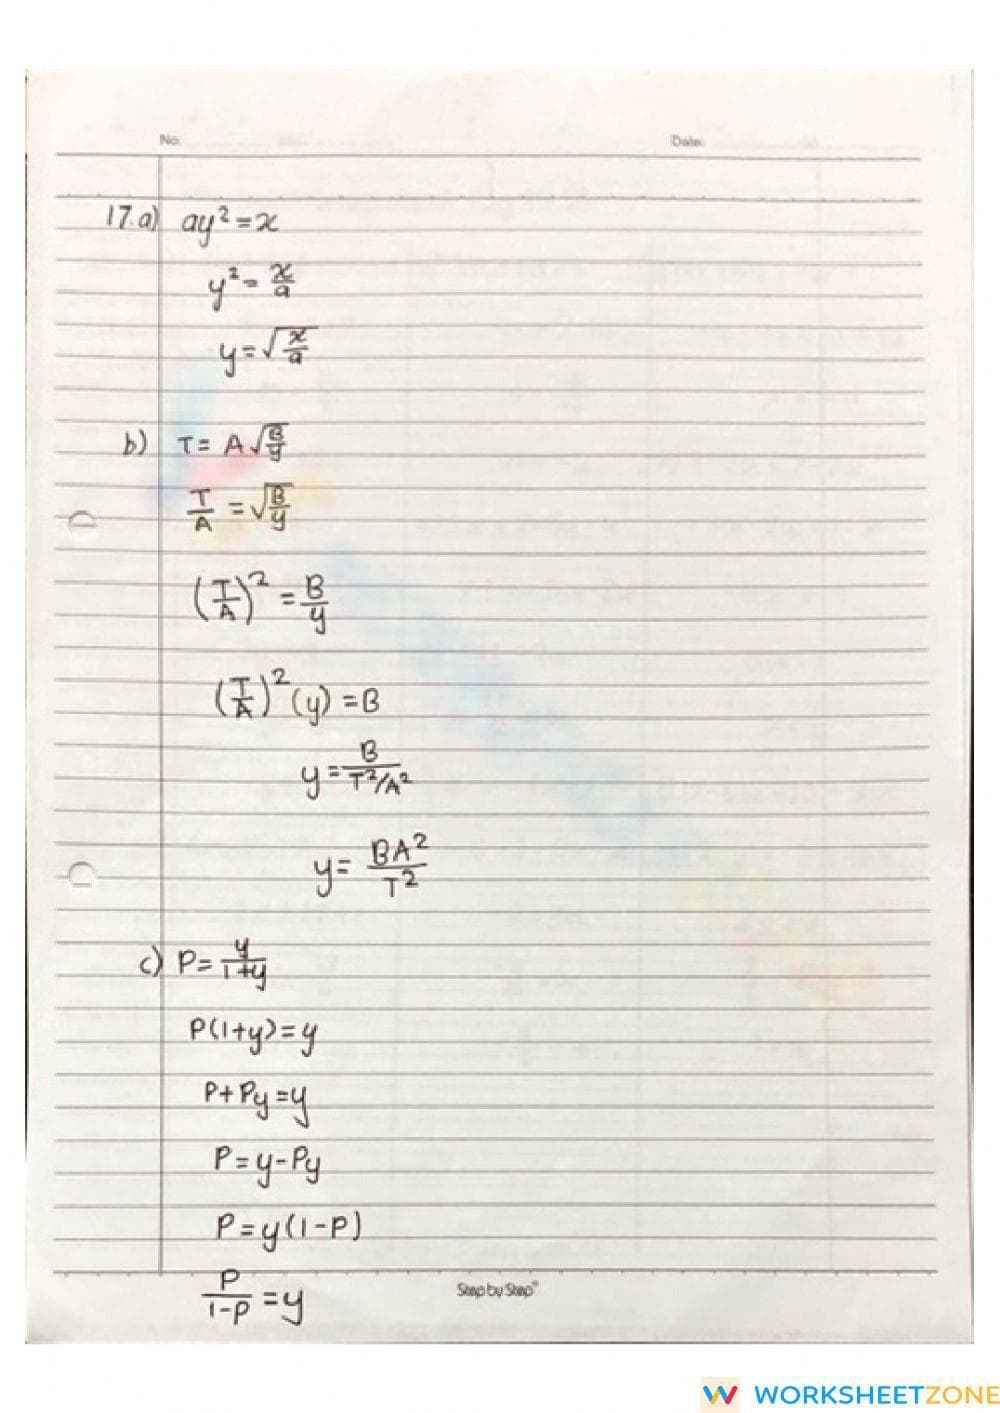 No. Date:
17.a) ay² = x
y² = x/a
y = √(x/a)
b) T = A√(B/y)
T/A = √(B/y)
(T/A)² = B/y
(T/A)² (y) = B
y = B/(T²/A²)
y = BA²/T²
c) P = y/(1+y)
P(1+y) = y
P + Py = y
P = y - Py
P = y(1-P)
P/(1-P) = y
Step by Step®
WORKSHEETZONE